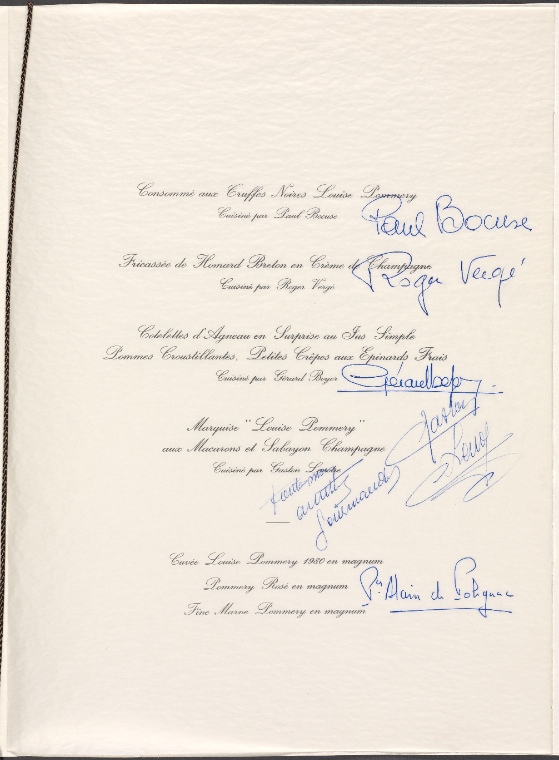 Consommé aux Truffes Noires Louise Pommery
Cuisiné par Paul Bocuse
Paul Bocuse
Fricassée de Homard Breton en Crème de Champagne
Cuisiné par Roger Vergé
Roger Vergé
Cotelettes d'Agneau en Surprise au Jus Simple
Pommes Croustillantes, Petites Crêpes aux Epinards Frais
Cuisiné par Gérard Boyer
Marquise "Louise Pommery"
aux Macarons et Sabayon Champagne
Cuisiné par Gaston Lenôtre
Gaston
Lenôtre
gourmande
Cuvée Louise Pommery 1980 en magnum
Pommery Rosé en magnum
Fine Marne Pommery en magnum
Pce Alain de Polignac